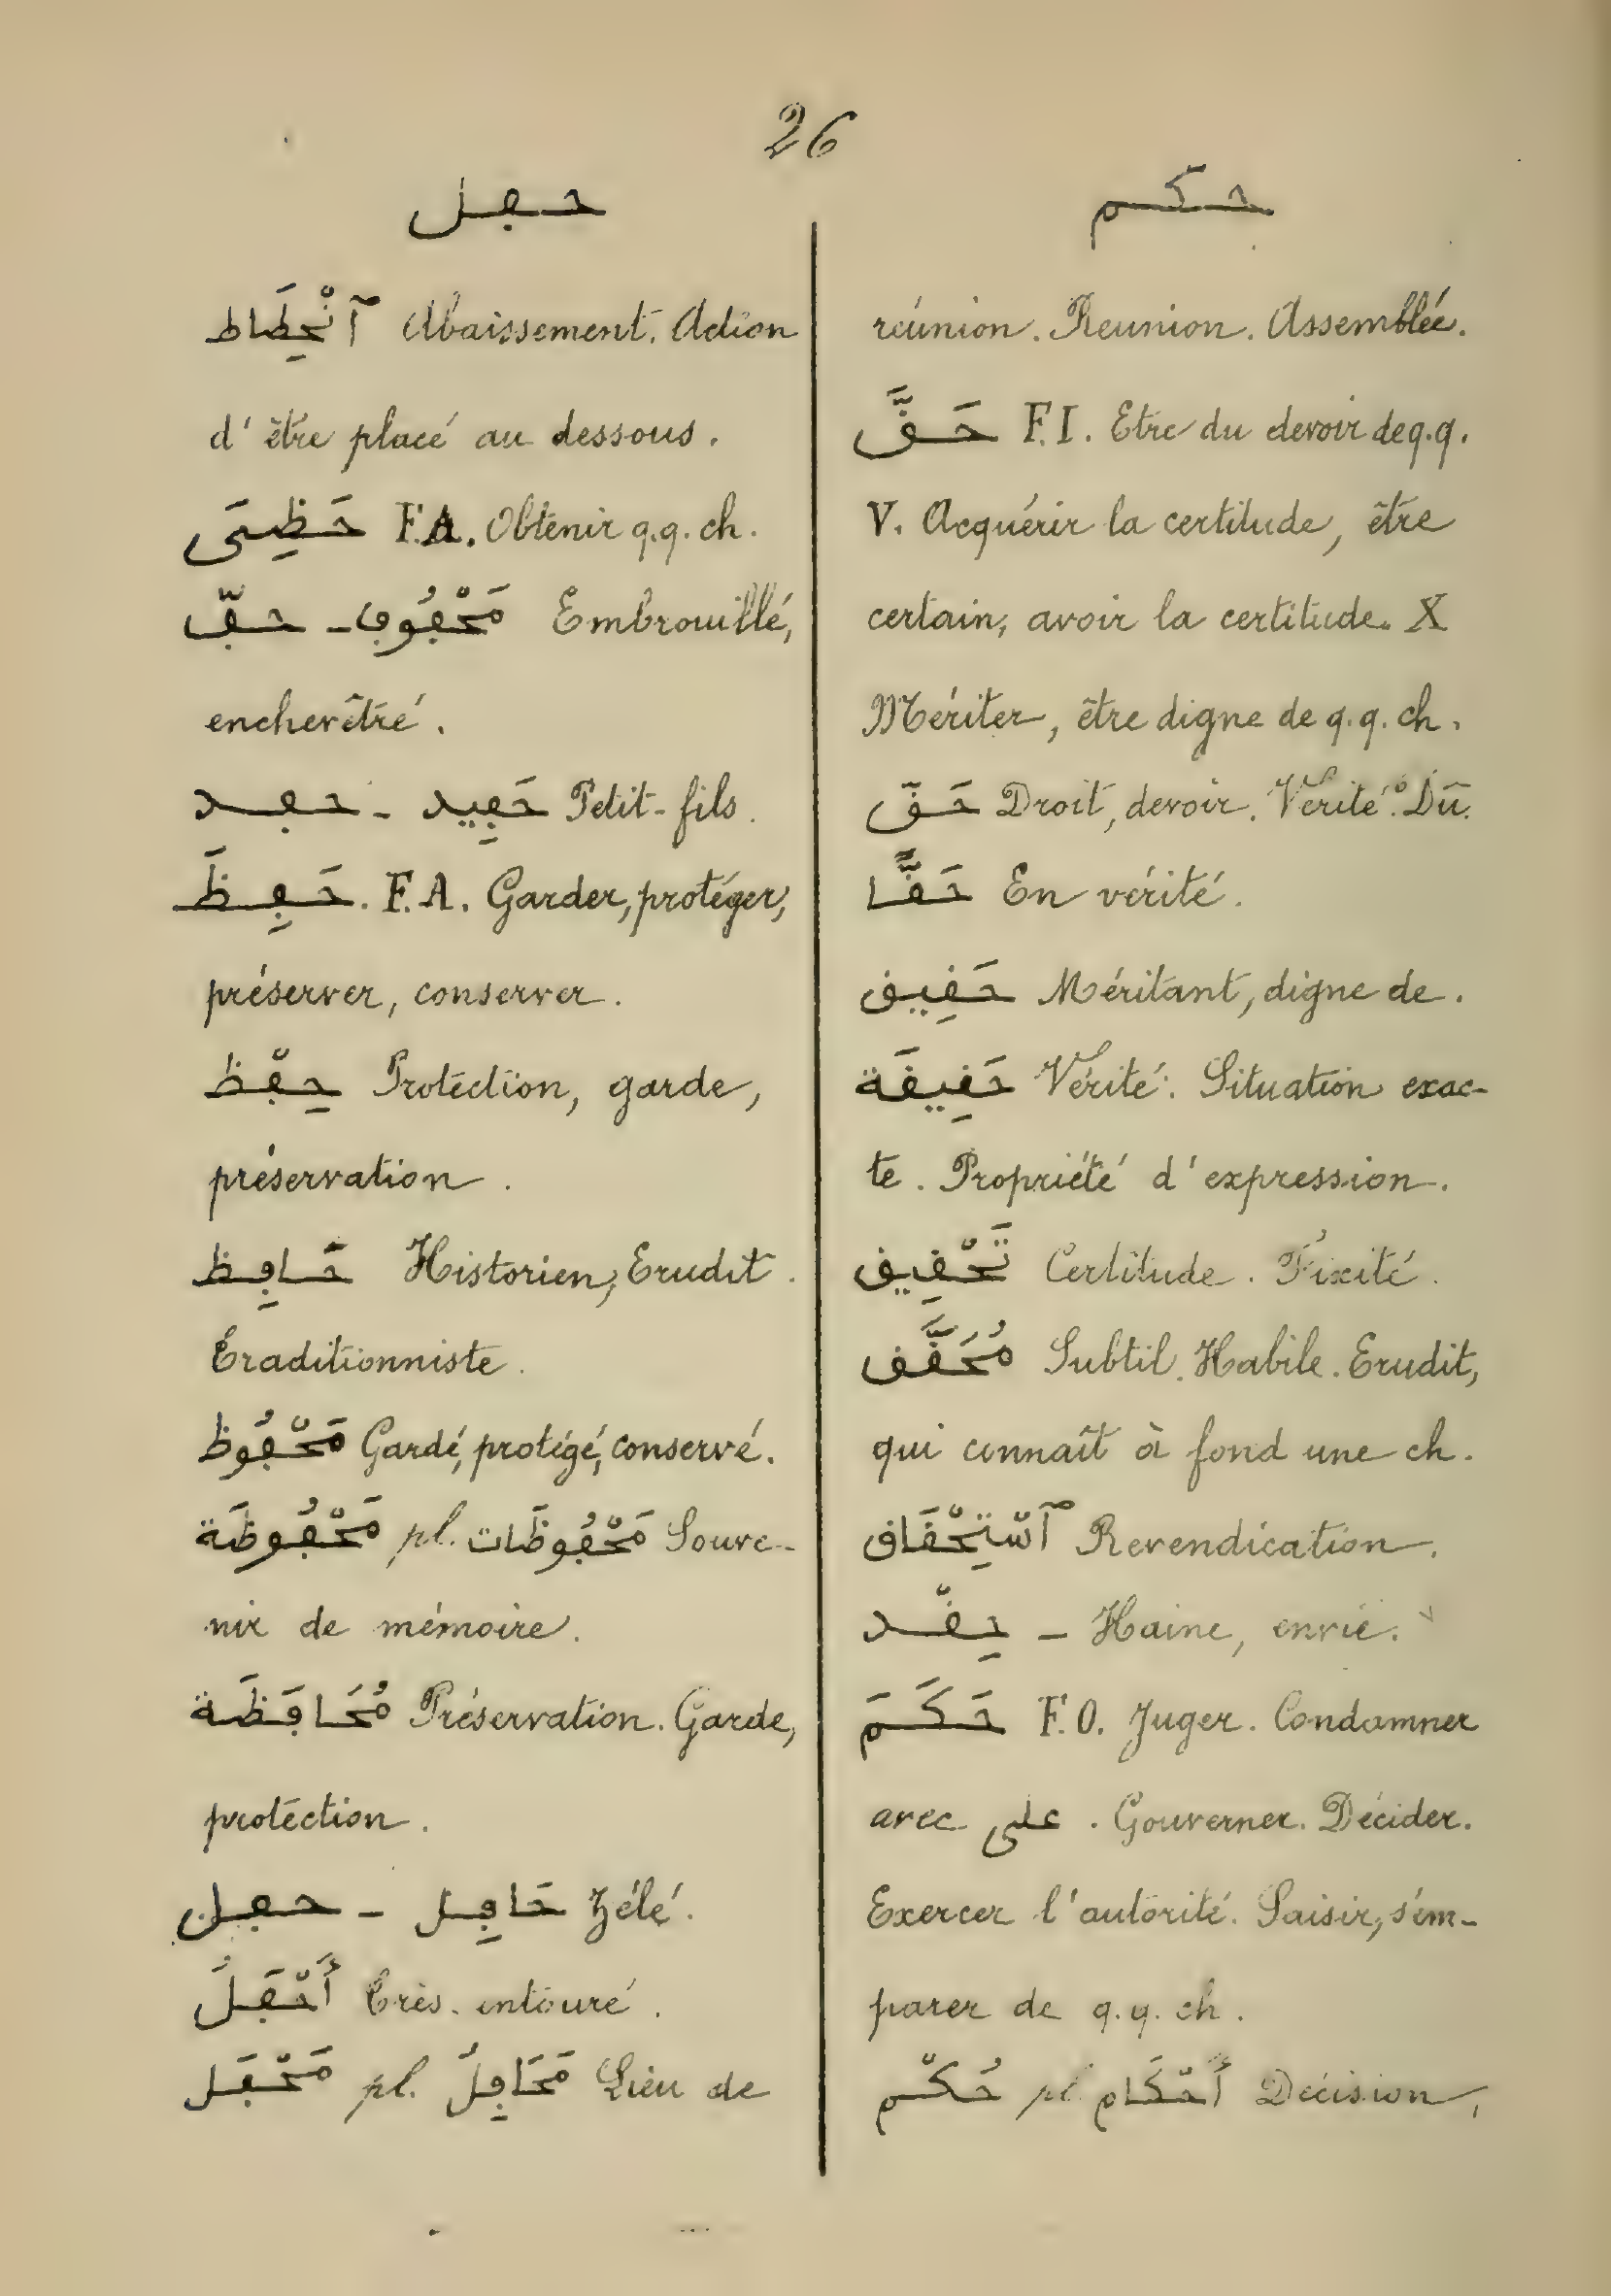 26
حفل
آنْحِطَاط Abaissement. Action
d'être placé au dessous.
حَظِىَ F.A. Obtenir q.q. ch.
حفّ - مَحْفُوف Embrouillé,
enchevêtré.
حفد - حَفِيد Petit-fils.
حَفِظَ. F.A. Garder, protéger,
préserver, conserver.
حِفْظ Protection, garde,
préservation.
حَافِظ Historien, Erudit.
Traditionniste.
مَحْفُوظ Gardé, protégé, conservé.
مَحْفُوظَة pl. مَحْفُوظَات Souve-
nir de mémoire.
مُحَافَظَة Préservation. Garde,
protection.
حفل - حَافِل Zélé.
أَحْفَلُ Très. entouré.
مَحْفَل pl. مَحَافِلُ Lieu de
حكم
réunion. Reunion. Assemblée.
حَقَّ F.I. Etre du devoir de q.q.
V. Acquérir la certitude, être
certain, avoir la certitude. X
Mériter, être digne de q.q. ch.
حَقّ Droit, devoir. Vérité. Dû.
حَقًّا En vérité.
حَقِيق Méritant, digne de.
حَقِيقَة Vérité. Situation exac-
te. Propriété d'expression.
تَحْقِيق Certitude. Fixité.
مُحَقَّق Subtil. Habile. Erudit,
qui connaît à fond une ch.
آسْتِحْقَاق Revendication.
حِقْد - Haine, envie.
حَكَمَ F.O. Juger. Condamner
avec على. Gouverner. Décider.
Exercer l'autorité. Saisir, s'em-
parer de q.q. ch.
حُكْم pl أَحْكَام Décision,